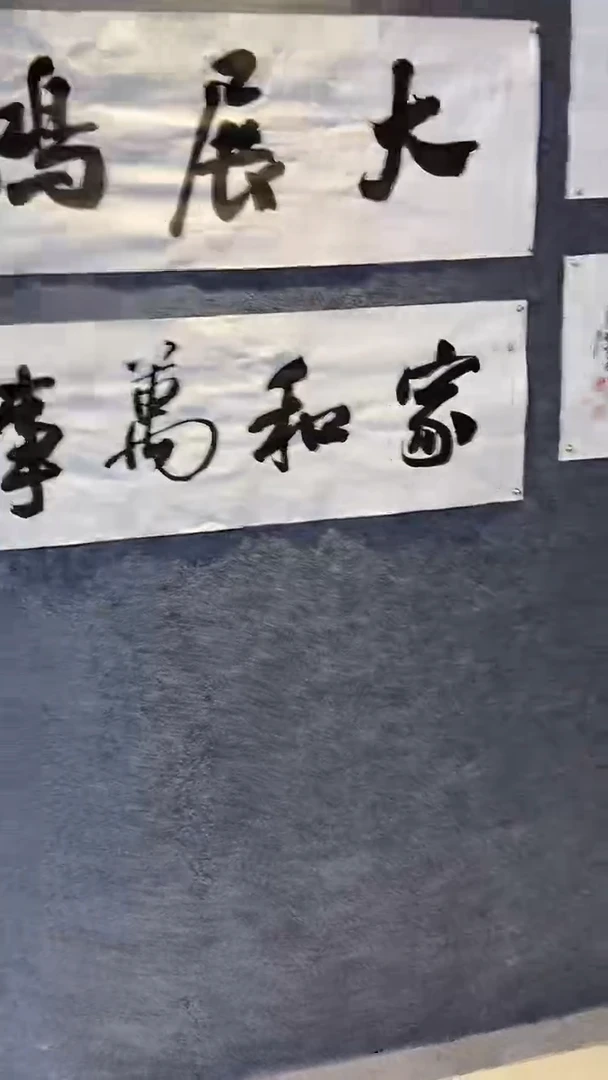 大展鴻
家和萬事